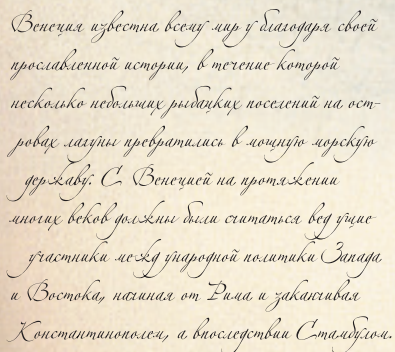 Венеция известна всему мир у благодаря своей
прославленной истории, в течение которой
несколько небольших рыбацких поселений на ост-
ровах лагуны превратились в мощную морскую
державу. С Венецией на протяжении
многих веков должны были считаться вед ущие
участники межд ународной политики Запада
и Востока, начиная от Рима и заканчивая
Константинополем, а впоследствии Стамбулом.